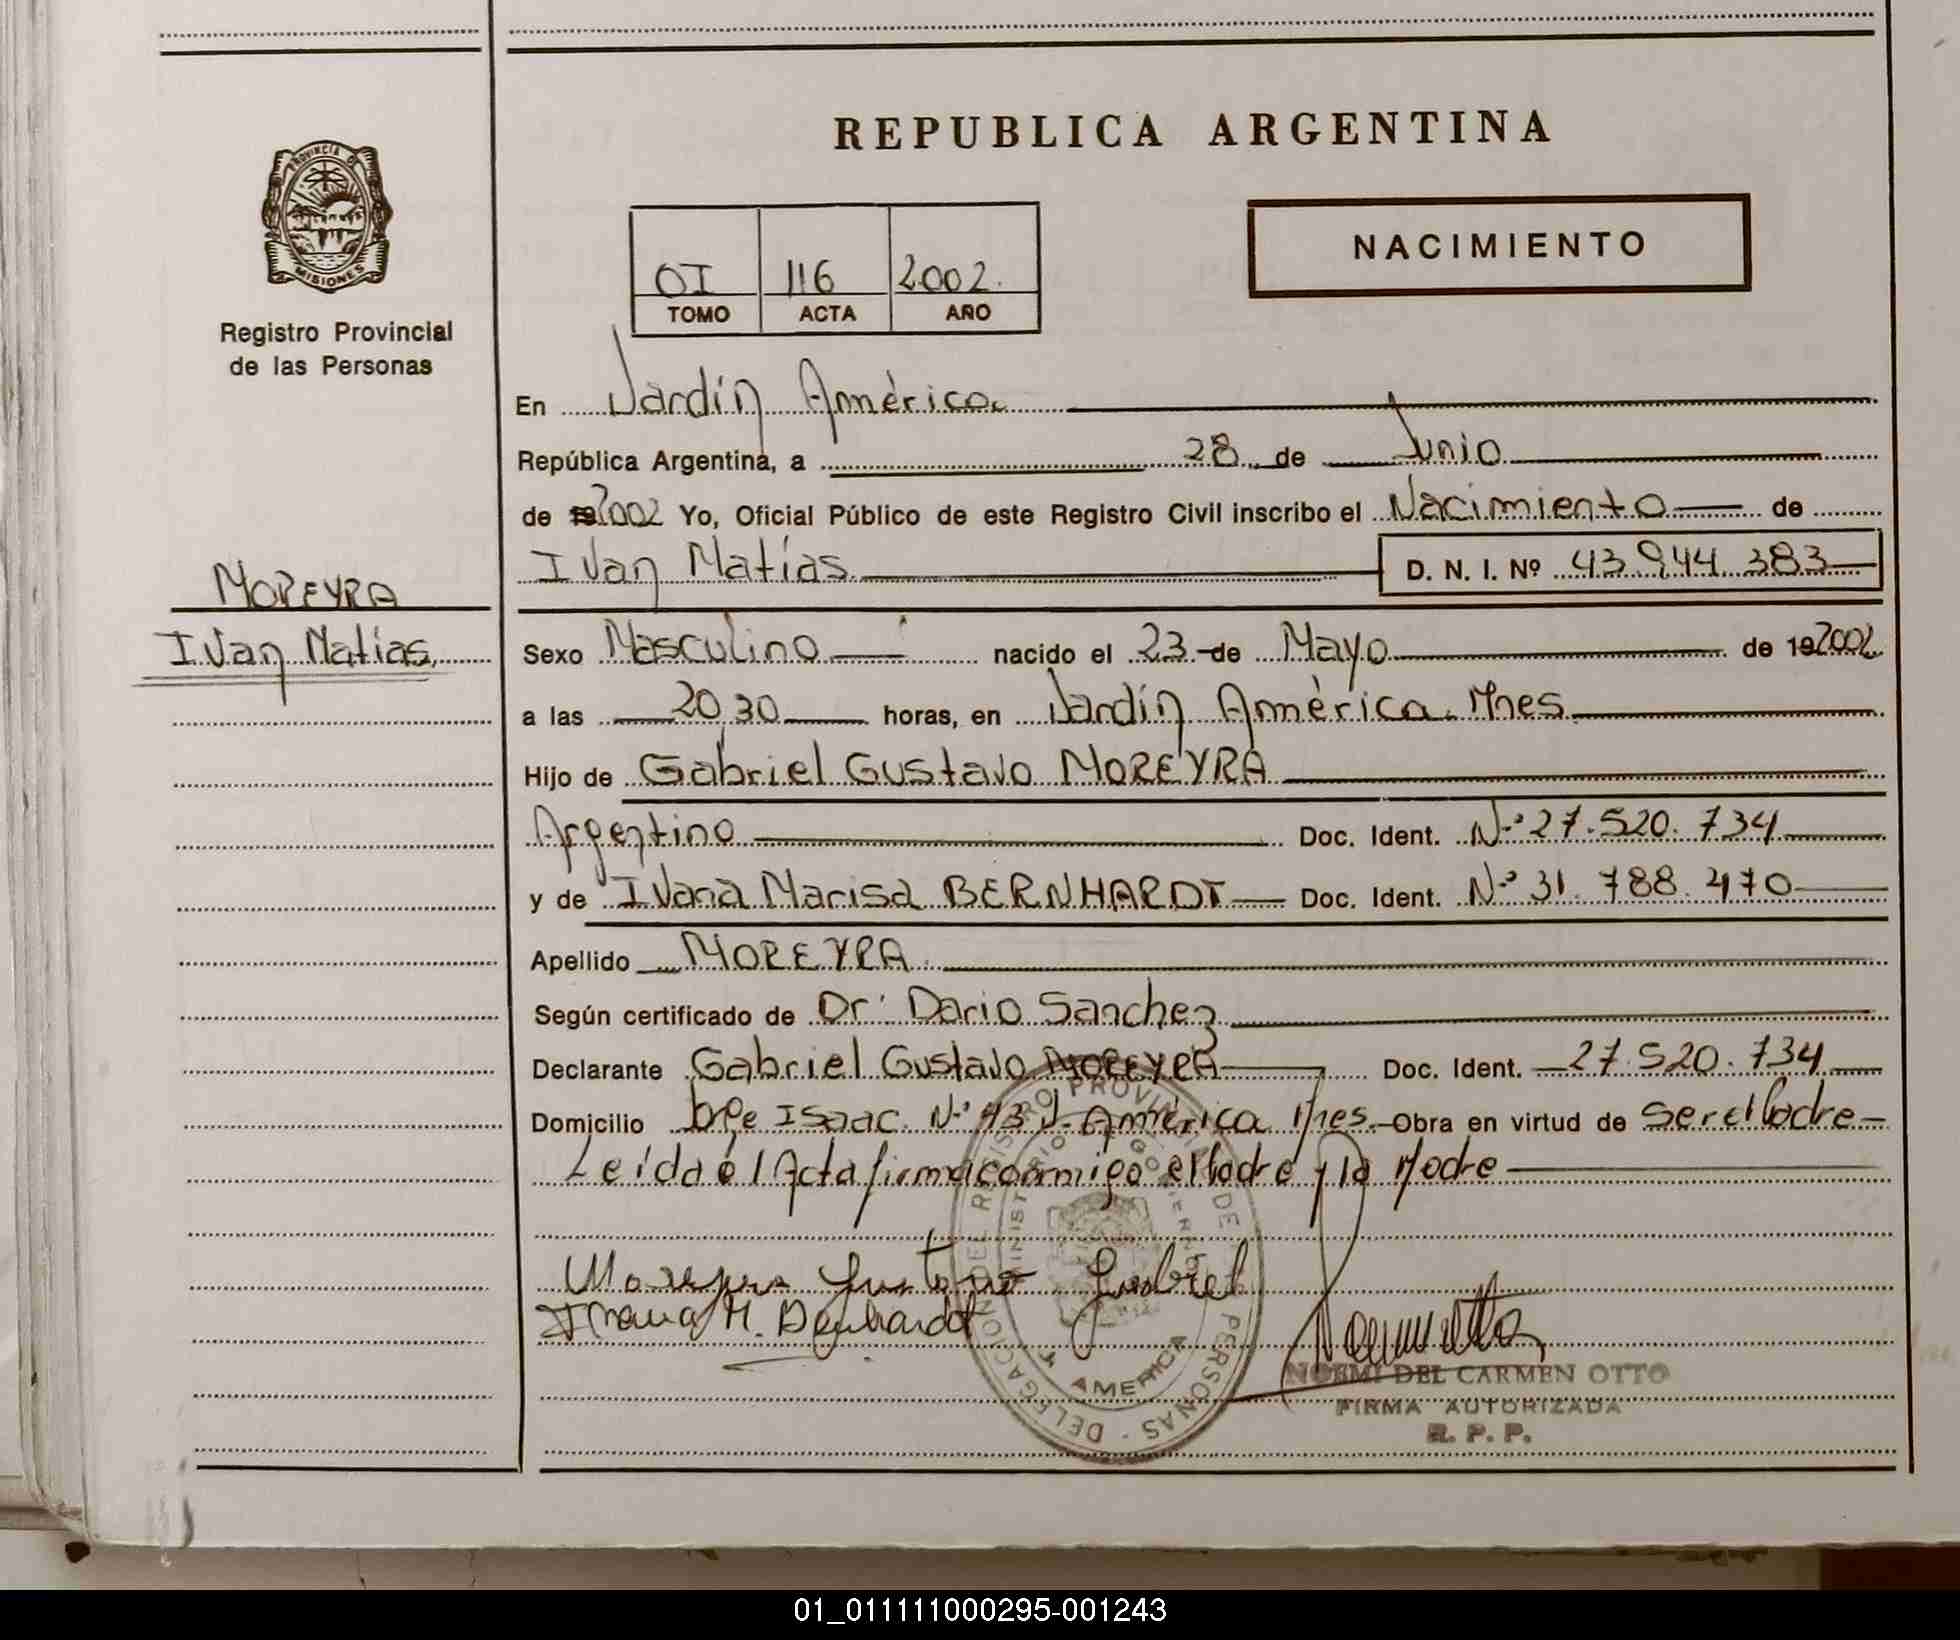 REPUBLICA ARGENTINA
PROVINCIA DE
MISIONES
Registro Provincial
de las Personas
NACIMIENTO
OI 116 2002.
TOMO ACTA AÑO
En Jardín América
República Argentina, a 28 de Junio
de 2002 Yo, Oficial Público de este Registro Civil inscribo el Nacimiento de
Ivan Matías D. N. I. Nº 43.944.383
MOREYRA
Ivan Matías
Sexo Masculino nacido el 23 de Mayo de 192002
a las 20,30 horas, en Jardín América. Mnes
Hijo de Gabriel Gustavo MOREYRA
Argentino Doc. Ident. Nº 27.520.734
y de Ivana Marisa BERNHARDT Doc. Ident. Nº 31.788.470
Apellido MOREYRA
Según certificado de Dr. Dario Sanchez
Declarante Gabriel Gustavo MOREYRA Doc. Ident. 27.520.734
Domicilio Isaac Nº 43 J. América Mnes Obra en virtud de ser el Padre
Leída el Acta firma conmigo el Padre y la Madre
Moreyra Gustavo Gabriel
Ivana M. Bernhardt
NOEMI DEL CARMEN OTTO
FIRMA AUTORIZADA
R. P. P.
01_011111000295-001243